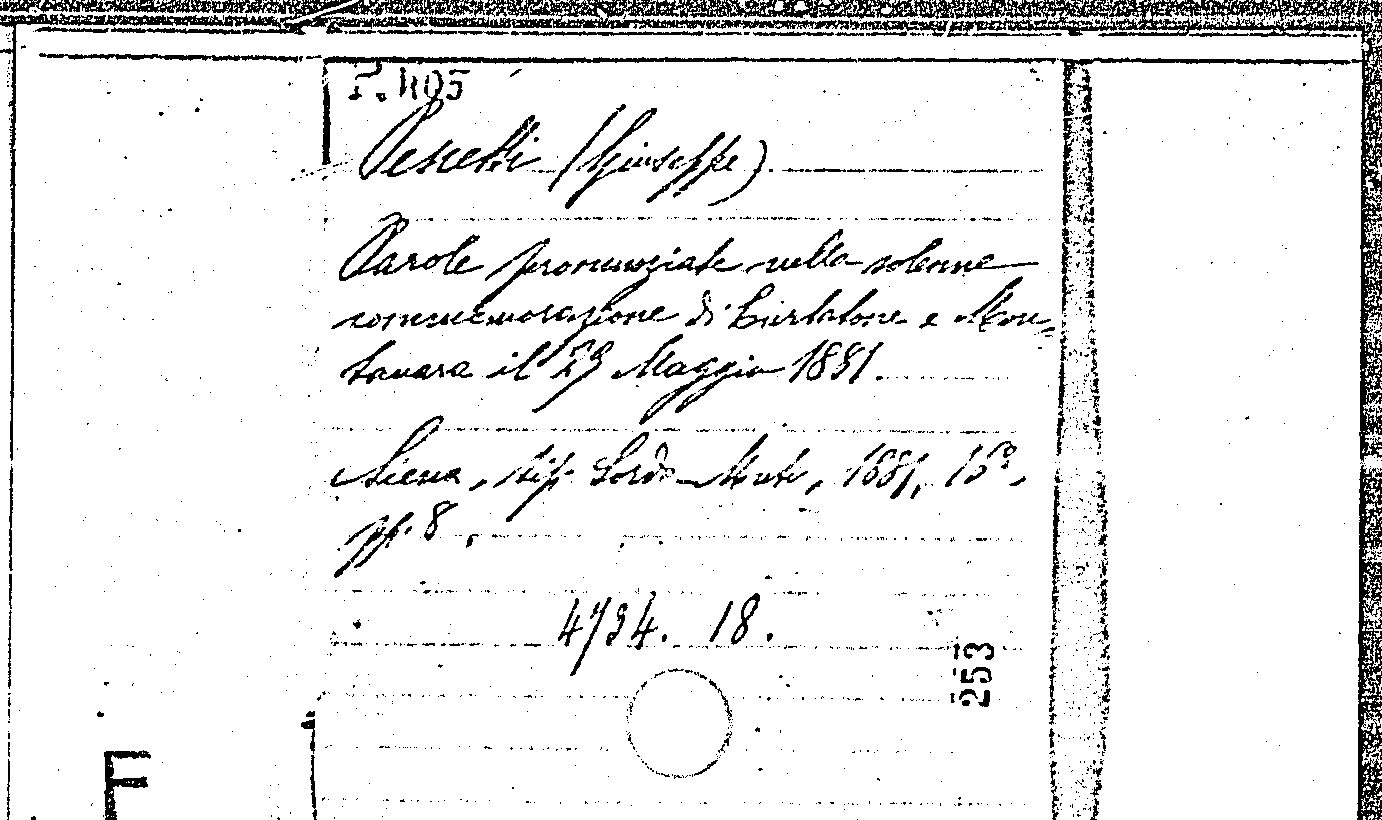 P.405
Pescetti (Giuseppe)
Parole pronunziate nella solenne
commemorazione di Curtatone e Mon=
tanara il 29 Maggio 1881.
Siena, tip. Sordo-Muti, 1881, 16º,
pp. 8.
4734. 18.
253
F